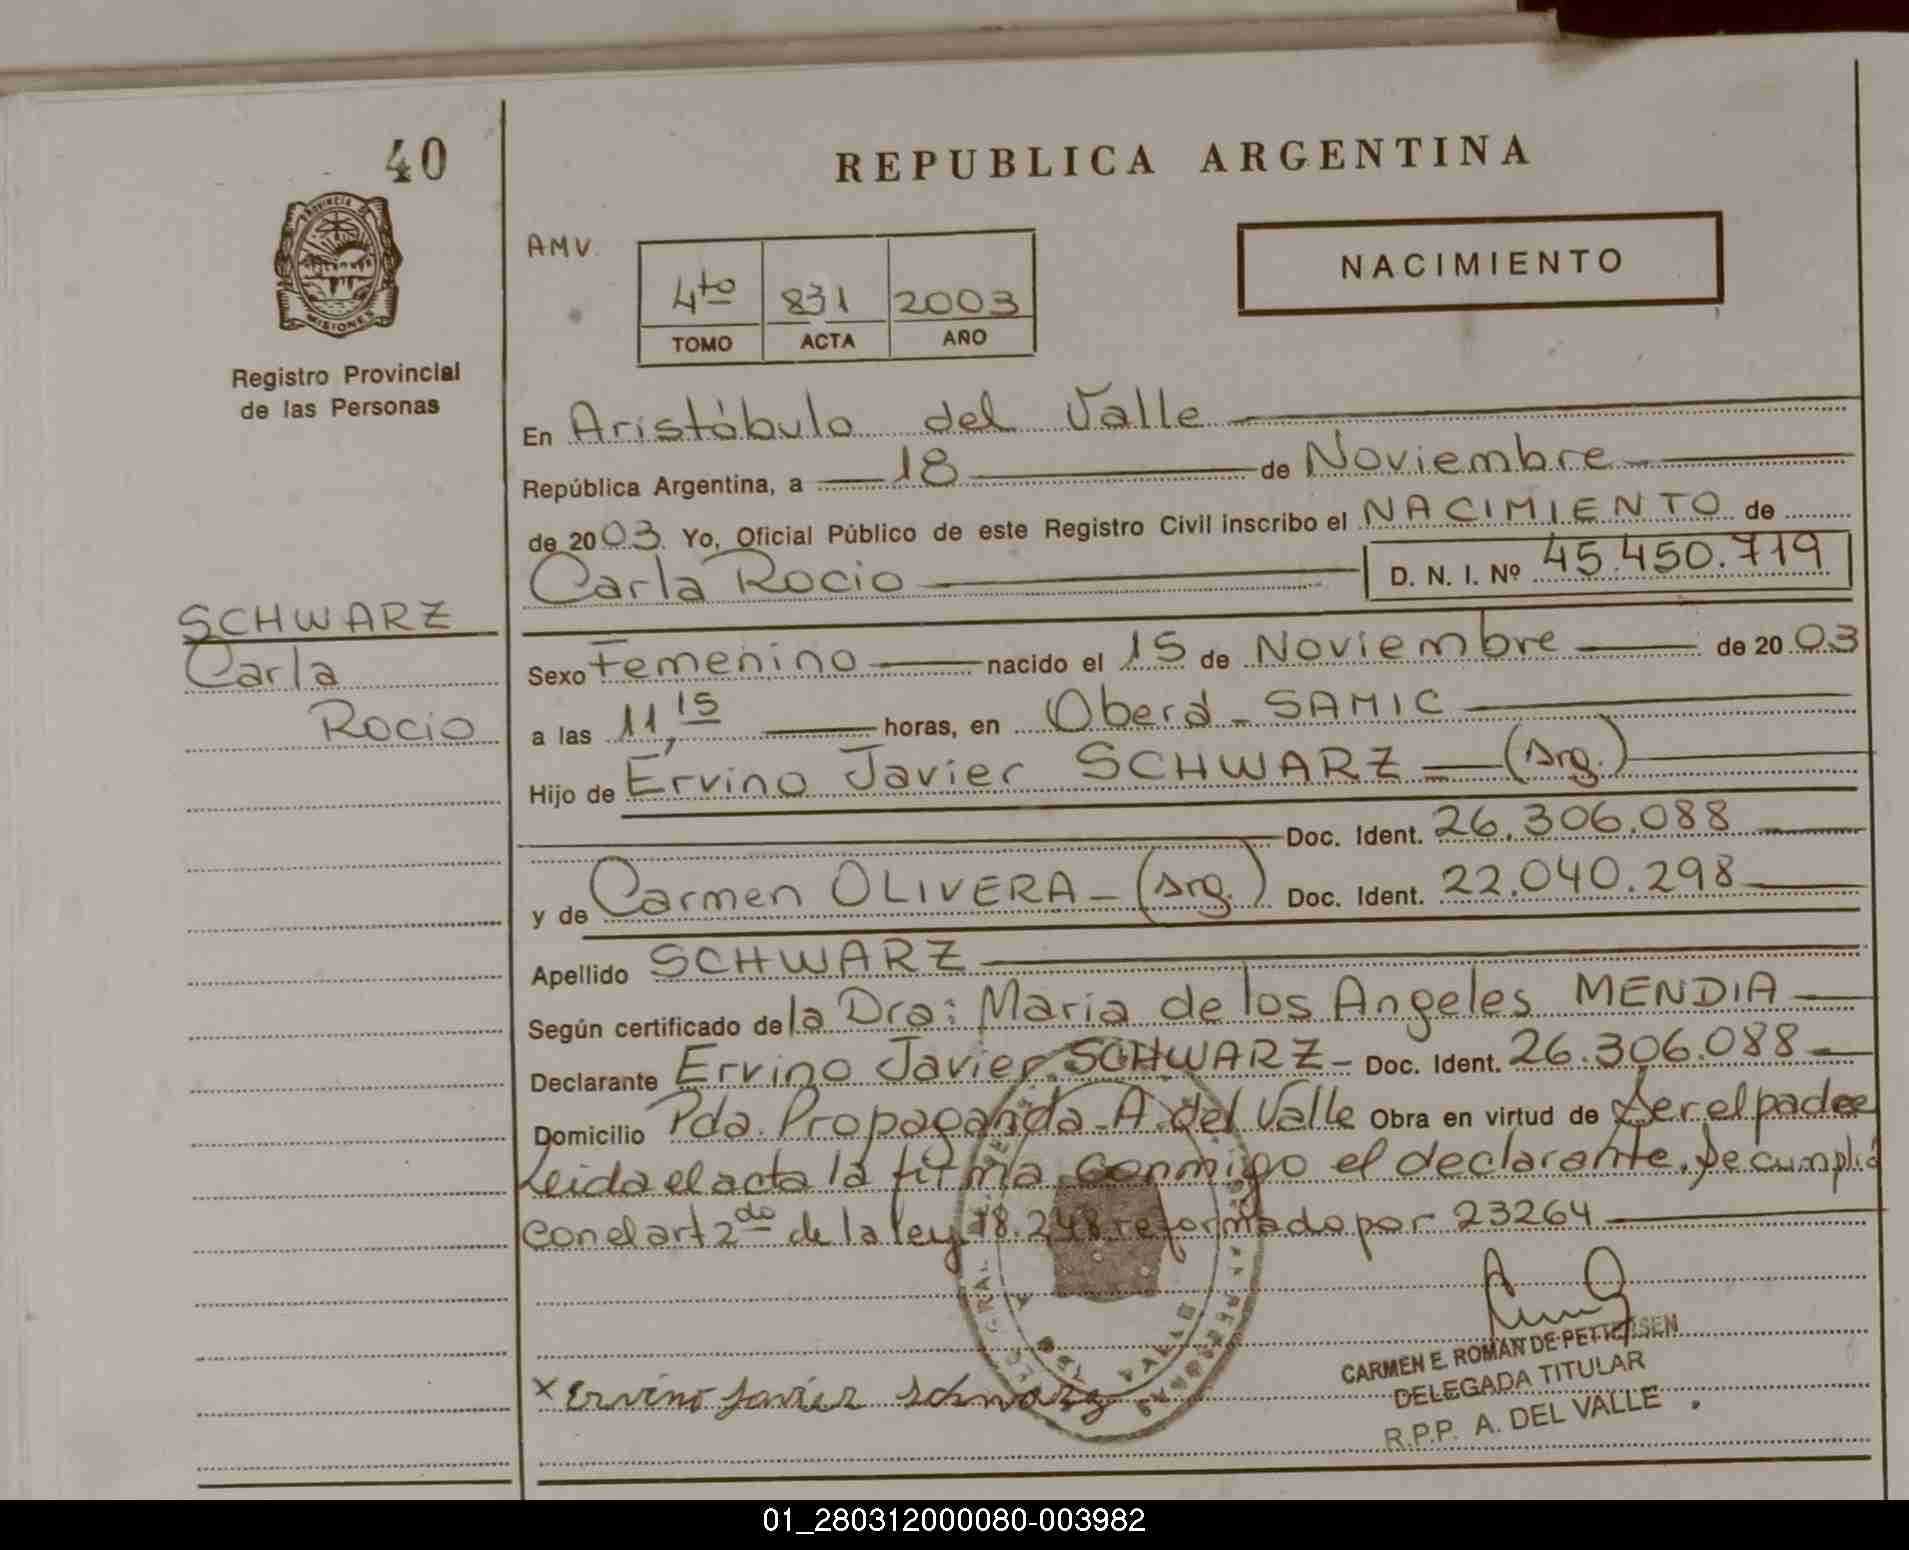 40
PROVINCIA DE
MISIONES
Registro Provincial
de las Personas
SCHWARZ
Carla
Rocio
REPUBLICA ARGENTINA
AMV.
NACIMIENTO
4to 831 2003
TOMO ACTA AÑO
En Aristóbulo del Valle
República Argentina, a 18 de Noviembre
de 2003. Yo, Oficial Público de este Registro Civil inscribo el NACIMIENTO de
Carla Rocio D. N. I. Nº 45.450.719
Sexo Femenino nacido el 15 de Noviembre de 2003
a las 11,15 horas, en Oberá - SAMIC
Hijo de Ervino Javier SCHWARZ (Arg.)
Doc. Ident. 26.306.088
y de Carmen OLIVERA - (Arg.) Doc. Ident. 22.040.298
Apellido SCHWARZ
Según certificado de la Dra: Maria de los Angeles MENDIA
Declarante Ervino Javier SCHWARZ - Doc. Ident. 26.306.088
Domicilio Pda. Propaganda - A. del Valle Obra en virtud de Ser el padre
Leida el acta la firma conmigo el declarante. Se cumplió
con el art 2do de la ley 18.248 reformado por 23264
x Ervino Javier Schwarz
CARMEN E. ROMAN DE PETTERSEN
DELEGADA TITULAR
R.P.P. A. DEL VALLE
01_280312000080-003982